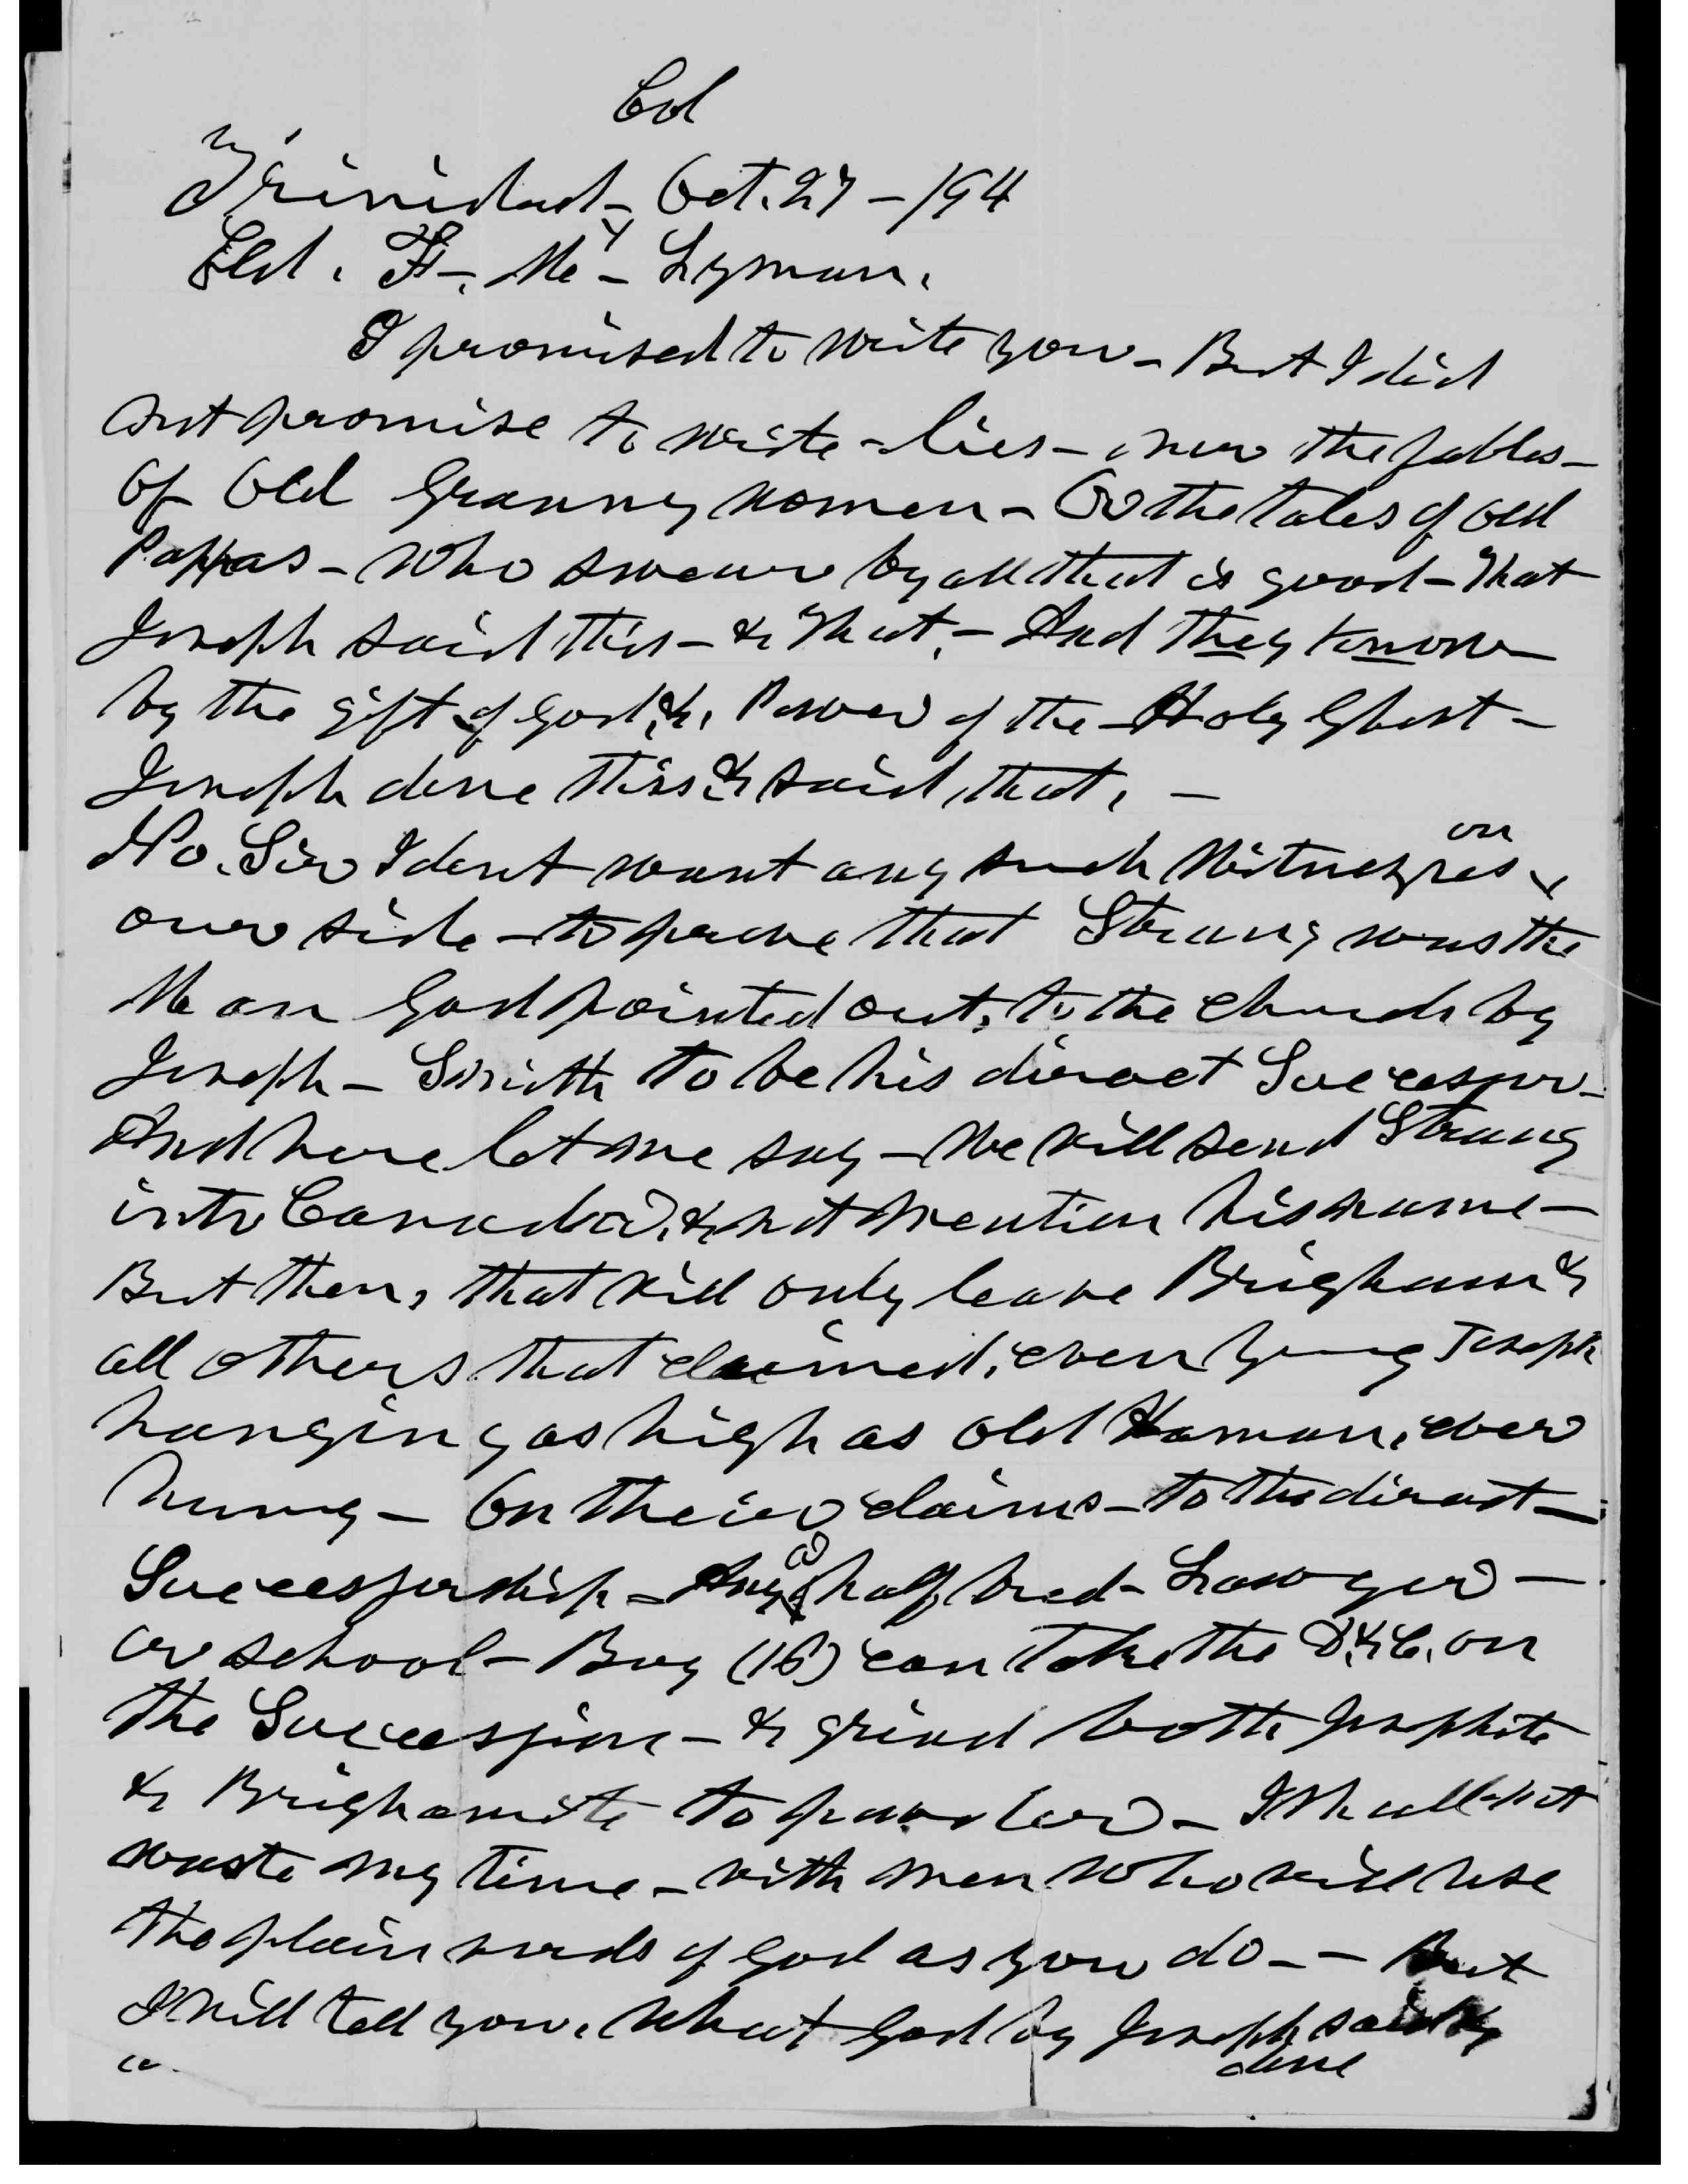 Col
Trinidad - Oct. 27 - /94
Eld. F. M. - Lyman.
I promised to write you - But I did
not promise to write - lies - nor the fables -
of Old Granny women - Or the tales of old
Pappas - Who sweare by all that is good - That
Joseph said this - & That. - And they know
by the gift of God, &. Power of the - Holy Ghost -
Joseph done this & said, that, -
on
No. Sir I dont want any such Witnesses
our side - to prove that Strang was the
Man God pointed out, to the Church by
Joseph - Smith to be his direct Successor -
And here let me say - We will send Strang
into Canada, & not mention his name -
But then, that will only leave Brigham &
all others that claimed, even young Joseph
hanging as high as old Haman, ever
hung - On their claims - to the direct -
Successorship - Any half bred - Lawyer -
or school - Boy (16) can Take the D. & C. on
the Succession - & grind both Josephite
& Brighamite to powder - I shall not
waste my time - with men who will use
the plain words of God as you do - - But
I will tell you, What God by Joseph said &
done